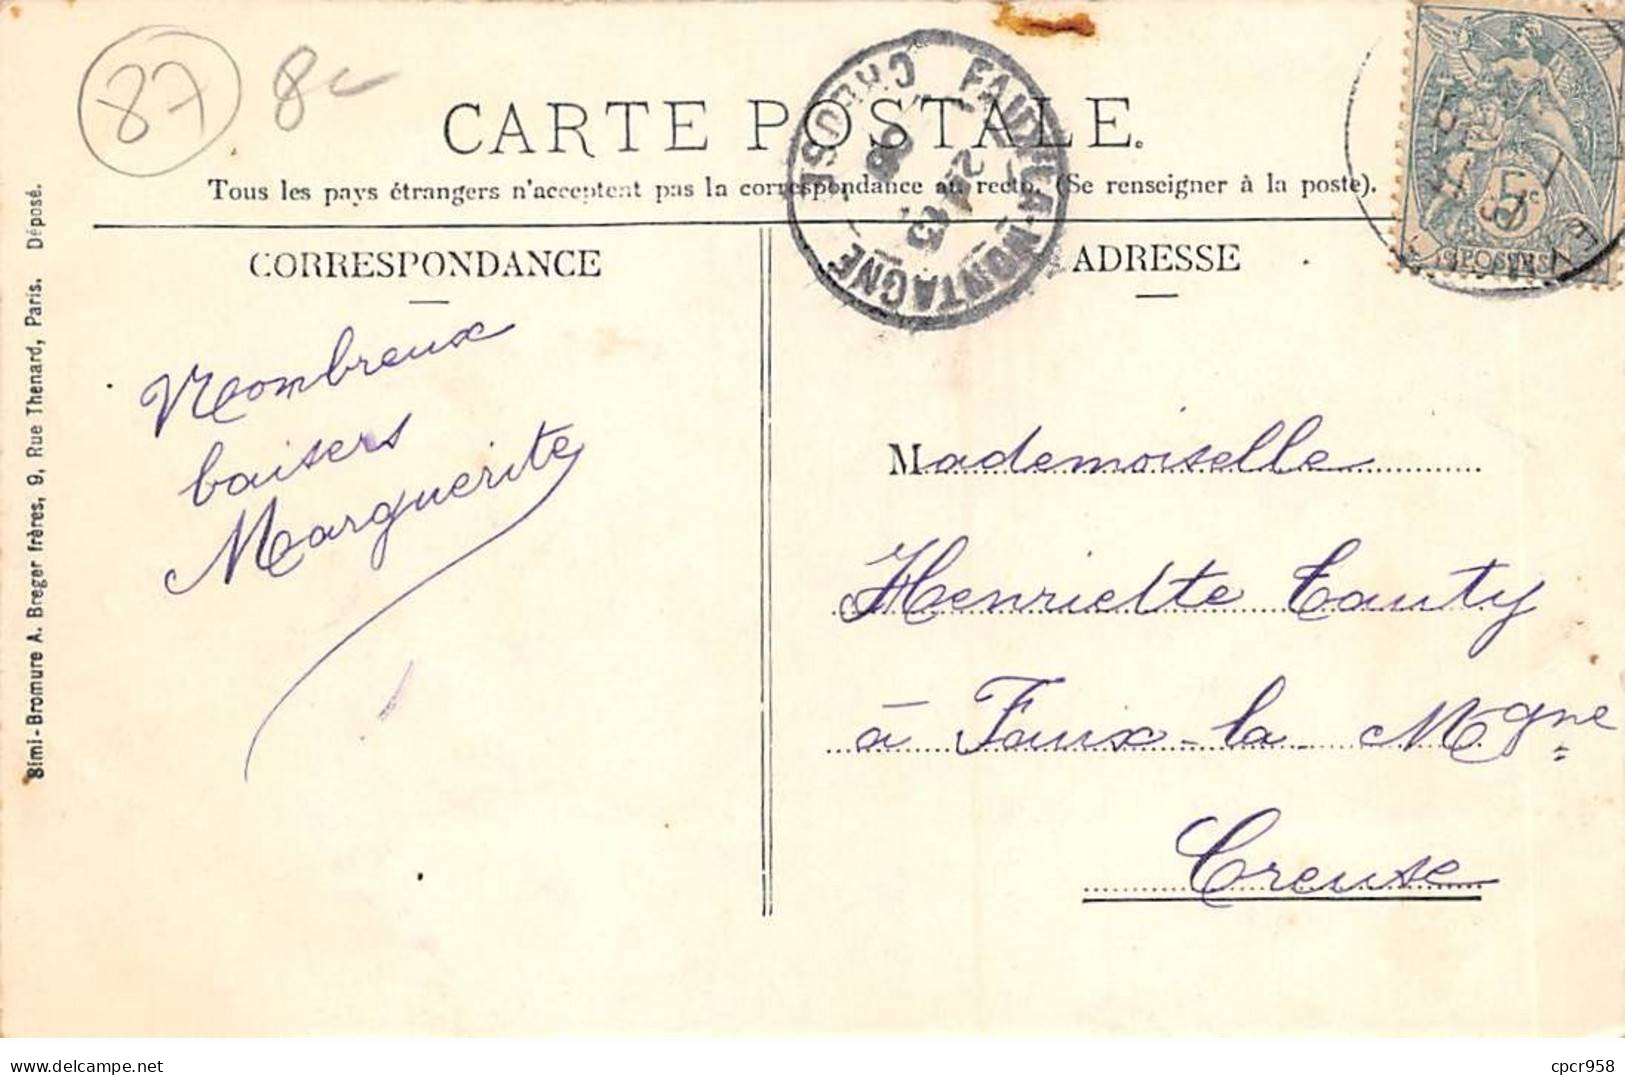 87 8c
CARTE POSTALE.
Tous les pays étrangers n'acceptent pas la correspondance au recto. (Se renseigner à la poste).
FAUX-LA-MONTAGNE
CREUSE
5c
POSTES
CORRESPONDANCE
ADRESSE
Nombreux
baisers
Marguerite
Mademoiselle
Henriette Tauty
à Faux-la Mgne
Creuse
Simi-Bromure A. Breger frères, 9, Rue Thenard, Paris. Déposé.
cpcr958